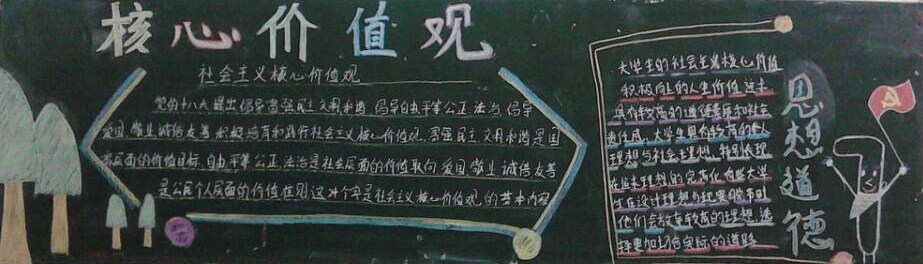 核心价值观
社会主义核心价值观
党的十八大提出倡导富强民主文明和谐 倡导自由平等公正法治 倡导
爱国 敬业诚信友善 积极培育和践行社会主义核心价值观 富强民主文明和谐是国
家层面的价值目标 自由平等公正法治是社会层面的价值取向 爱国敬业诚信友善
是公民个人层面的价值准则 这24个字是社会主义核心价值观的基本内容
大学生的社会主义核心价值
积极向上的人生价值追求
具有较高的道德素质和社会
责任感 大学生具有较高的个人
理想与社会理想 特别表现
在追求理想的完善化
生在设计理想与现实
他们会放弃较高的理想 选
择更加切合实际的道路
思想道德